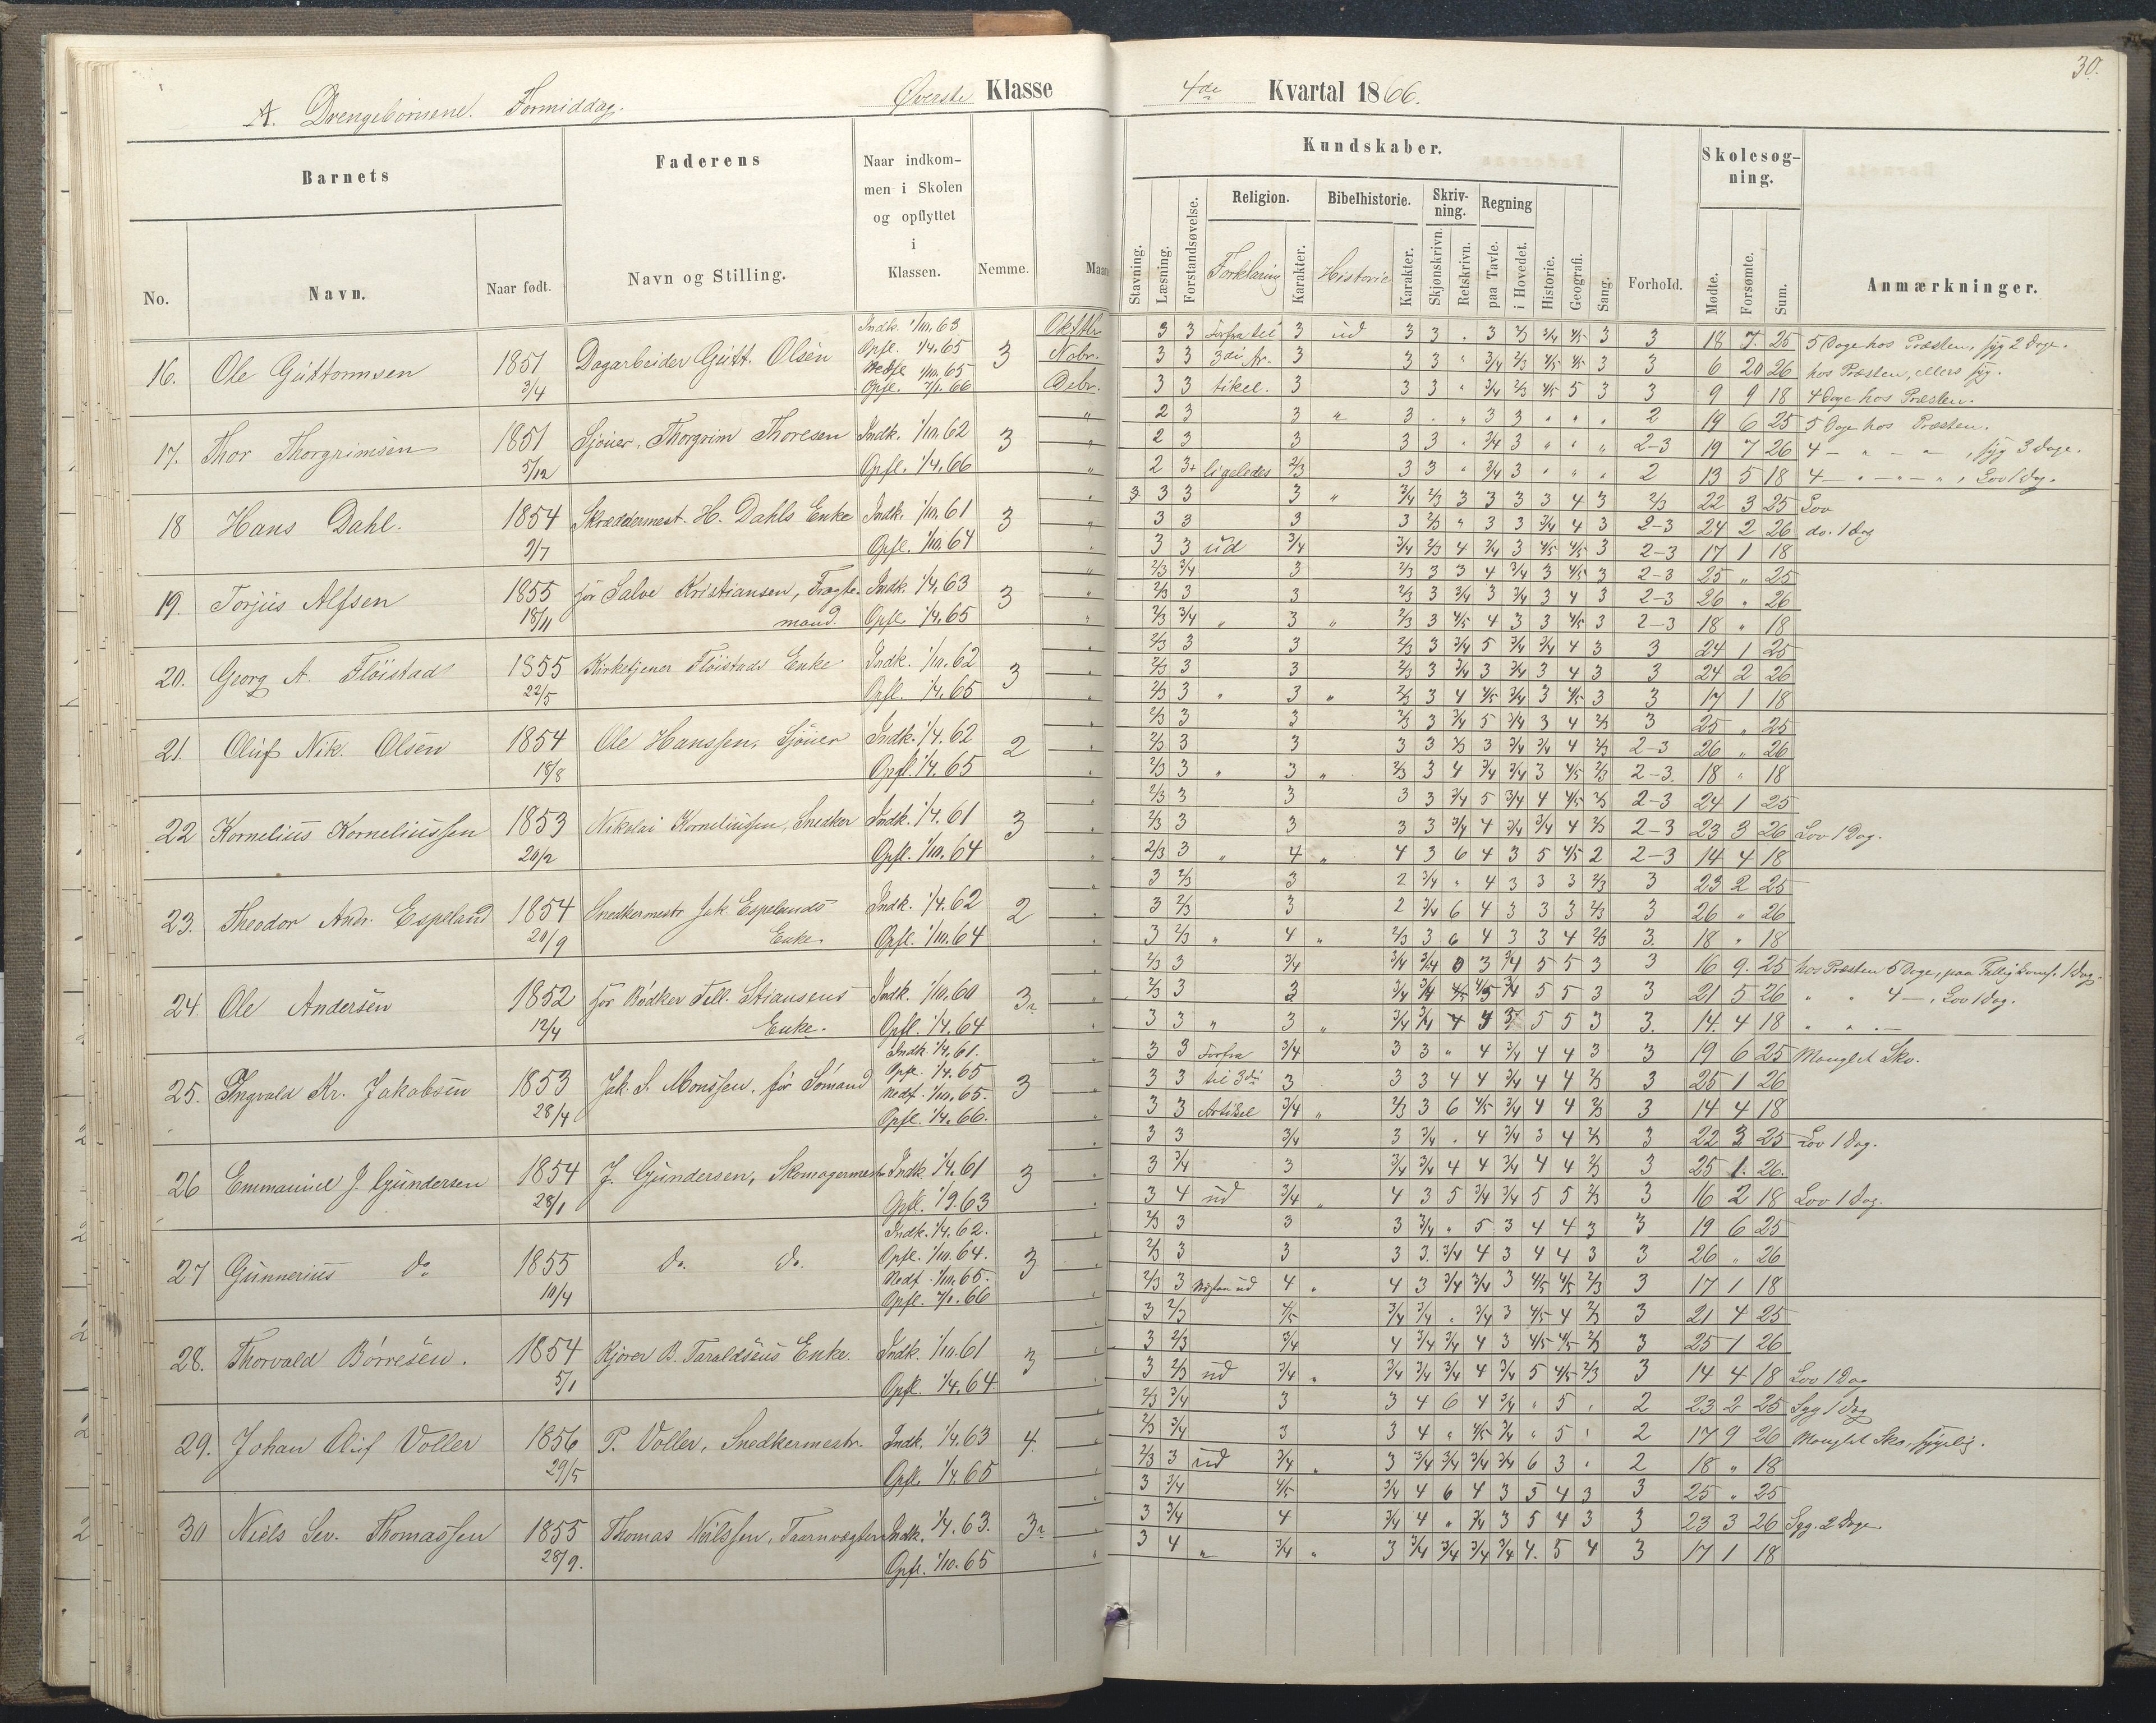 30.
A. Drengebørnene. Formiddag. Øverste Klasse 4de Kvartal 1866.
Barnets Faderens Naar indkommen i Skolen og opflyttet i Klassen. Nemme. Kundskaber. Forhold. Skolesøgning. Anmærkninger.
No. Navn. Naar født. Navn og Stilling.
Stavning. Læsning. Forstandsøvelse. Religion. Forklaring Karakter. Bibelhistorie. Historie Karakter. Skrivning. Skjønskrivn. Retskrivn. Regning paa Tavle. i Hovedet. Historie. Geografi. Sang. Mødte. Forsømte. Sum.
16. Ole Guttormsen 1851 3/4 Dagarbeider Gutt. Olsen 3
Indk. 1/10.63 Oktbr 3 3 Forfra til 3 ud 3 3 3 3 18 7 25 5 Dage hos Præsten, syg 2 Dage.
Opfl. 1/4.65 Nobr. 3 3 3di Ar- 3 3 3 3 6 20 26 hos Præsten, ellers syg.
Nedfl 1/10.65
Opfl. 2/1.66 Debr. 3 3 tikel. 3 3 3 3 9 9 18 4 Dage hos Præsten.
17. Thor Thorgrimsen 1851 5/12 Sjøuer, Thorgrim Thoresen Indk. 1/10.62 Opfl. 1/4.66 3
2 3 3 " 3 3 3 2 19 6 25 5 Dage hos Præsten.
2 3 3 3 3 3/4 3 2-3 19 7 26 4 — " — , syg 3 Dage.
2 3+ ligeledes 2/3 3 3 3/4 3 2 13 5 18 4 — " — , Lov 1 Dag.
18 Hans Dahl. 1854 2/7 Skræddermest. H. Dahls Enke Indk. 1/10.61 Opfl. 1/10.64 3
3 3 3 " 3/4 2/3 3 3 3 3 4 3 2/3 22 3 25 Lov
3 3 3 3 2/3 " 3 3 3/4 4 3 2-3 24 2 26 do. 1 Dag
3 3 ud 3/4 3/4 2/3 4 3/4 3 4/5 4/5 3 2-3 17 1 18
19. Torjus Alfsen 1855 18/11 for Salve Kristiansen, Fragtemand. Indk. 1/4.63 Opfl. 1/4.65 3
2/3 3/4 3 2/3 3 3 4 3/4 3 4/5 3 2-3 25 " 25
2/3 3 3 2/3 3 3/4 3 3/4 3 4 3 2-3 26 " 26
2/3 3/4 " 3 " 2/3 3 4/5 4 3 3 4/5 3 2-3 18 " 18
20. Georg A. Fløistad 1855 22/5 Kirketjener Fløistads Enke Indk. 1/10.62 Opfl. 1/4.65 3
2/3 3 3 2/3 3 3/4 5 3/4 3/4 4 3 3 24 1 25
2/3 3 3 2/3 3 3/4 3 3/4 3 4 3 3 24 2 26
2/3 3 " 3 " 2/3 3 4 4/5 3/4 3 4/5 3 3 17 1 18
21. Oluf Nik. Olsen 1854 18/8 Ole Hanssen, Sjøuer Indk. 1/4.62 Opfl. 1/4.65 2
2/3 3 3 2/3 3 3/4 5 3/4 3 4 2/3 3 25 " 25
2/3 3 3 3 3 2/3 3 3/4 3/4 4 2/3 2-3 26 " 26
2/3 3 " 3 " 2/3 3 4 3/4 3/4 3 4/5 2/3 2-3. 18 " 18
22 Kornelius Korneliussen 1853 20/2 Nikolai Korneliussen, Snedker Indk. 1/4.61 Opfl. 1/10.64 3
2/3 3 3 3 3 3/4 5 3/4 4 4/5 2/3 2-3 24 1 25
2/3 3 3 3 3 3/4 4 3/4 3/4 4 2/3 2-3 23 3 26 Lov 1 Dag.
2/3 3 " 4 " 4 3 6 4 3 5 4/5 2 2-3 14 4 18
23. Theodor Andr. Espeland 1854 20/9 Snedkermestr Jak. Espelands Enke. Indk. 1/4.62 Opfl. 1/10.64 2
3 2/3 3 2 3/4 " 4 3 3 3 2/3 3 23 2 25
3 2/3 3 2 3/4 6 4 3 3 3 2/3 3 26 " 26
3 2/3 " 4 " 2/3 3 6 4 3 3 4 2/3 3. 18 " 18
24. Ole Andersen 1852 12/4 for Bødker Tell. Stiansens Enke. Indk. 1/10.60 Opfl. 1/4.64 3
2/3 3 3/4 3/4 3/4 0 3 3/4 5 5 3 3 16 9. 25 hos Præsten 5 Dage, paa 1 Dag.
2/3 3 3 3/4 3/4 3/4 5 5 3 3 21 5 26 " " 4 — , Lov 1 Dag.
3 3 " 3 " 3/4 3/4 4 5 5 3 3. 14. 4 18 " " —
25. Ingvald Kr. Jakobsen 1853 28/4 Jak. S. Monssen, før Sømand 3
Indk. 1/4.61. 3 3 Forfra 3/4 3 3 " 4 3/4 4 4 3 3 19 6 25 Manglet Sko.
Opfl. 1/4.65 3 3 til 3di 3 3 3 4 4 3/4 4 4 2/3 3 25 1 26
Nedf. 1/10.65.
Opfl. 1/4.66. 3 3 Artikel 3/4 " 2/3 3 6 4/5 3/4 4 4 2/3 3 14 4 18
26 Emmanuel J. Gundersen 1854 28/1 J. Gundersen, Skomagermestr Indk. 1/4.61 Opfl. 1/9.63 3
3 3 3/4 3 3/4 . 4 3/4 3 4 2/3 3 22 3 25 Lov 1 Dag.
3 3/4 3 3/4 3/4 4 4 3/4 4 4 2/3 3 25 1. 26.
3 4 ud 3/4 " 4 3 5 3/4 3/4 5 5 2/3 3 16 2 18 Lov 1 Dag.
27 Gunnerius do 1855 10/4 do. do. 3
Indk. 1/4.62. 2/3 3 3 3 3/4 " 5 3 4 4 3 3 19 6 25
Opfl. 1/10.64. 2/3 3 3 3 3. 3/4 4 3 4 4 3 3 26 " 26
Nedf. 1/10.65.
Opfl. 2/1.66 2/3 3 Næsten ud 4 " 4 3 3/4 3/4 3 4/5 4/5 2/3 3 17 1 18
28. Thorvald Børresen. 1854 5/1 Kjører B. Taraldsens Enke. Indk. 1/10.61 Opfl. 1/4.64 3
3 2/3 4/5 3/4 3/4 . 3/4 3 4/5 4 2/3 3 21 4 25
3 2/3 3/4 4 3/4 3/4 4 3 4/5 4/5 2/3 3 25 1 26
3 2/3 ud 3/4 " 3/4 3/4 3/4 4 3/4 5 4/5 2/3 3 14 4 18 Lov 1 Dag
29. Johan Oluf Voller 1856 29/5 P. Voller, Snedkermestr. Indk. 1/4.63 Opfl. 1/4.65 4.
2/3 3/4 3 3 4 6 4 3/4 " 5 . 2 23 2 25 Syg 1 Dag
2/3 3/4 3 3 4 " 4/5 3/4 " 5 . 2 17 9 26 Manglet Sko, sygelig.
2/3 3 ud 3/4 " 3 3/4 3/4 3/4 3/4 6 3 . 2 18 " 18
30 Niels Sev. Thomassen 1855 28/9. Thomas Nielssen, Taarnvægter Indk. 1/4.63. Opfl. 1/10.65 3
3 3/4 4/5 3/4 4 6 4 3 5 4 3 3 25 " 25
3 3/4 4 3/4 4 " 3/4 3 5 4 3 3 23 3 26 Syg. 2 Dage
3 4 " 3/4 " 3 3/4 3/4 3/4 3/4 4. 5 4 3 17 1 18